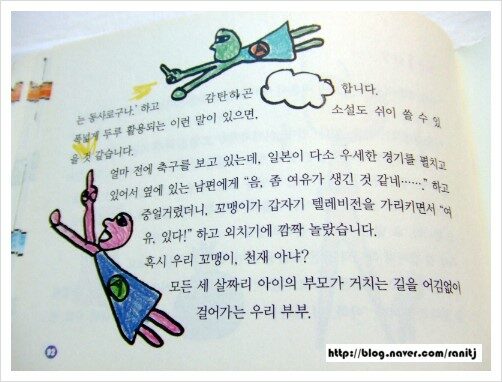 는 동사로구나.' 하고 감탄하곤 합니다.
폭넓게 두루 활용되는 이런 말이 있으면, 소설도 쉬이 쓸 수 있
을 것 같습니다.
얼마 전에 축구를 보고 있는데, 일본이 다소 우세한 경기를 펼치고
있어서 옆에 있는 남편에게 "음, 좀 여유가 생긴 것 같네……." 하고
중얼거렸더니, 꼬맹이가 갑자기 텔레비전을 가리키면서 "여
유, 있다!" 하고 외치기에 깜짝 놀랐습니다.
혹시 우리 꼬맹이, 천재 아냐?
모든 세 살짜리 아이의 부모가 거치는 길을 어김없이
걸어가는 우리 부부.
92
http://blog.naver.com/ranitj